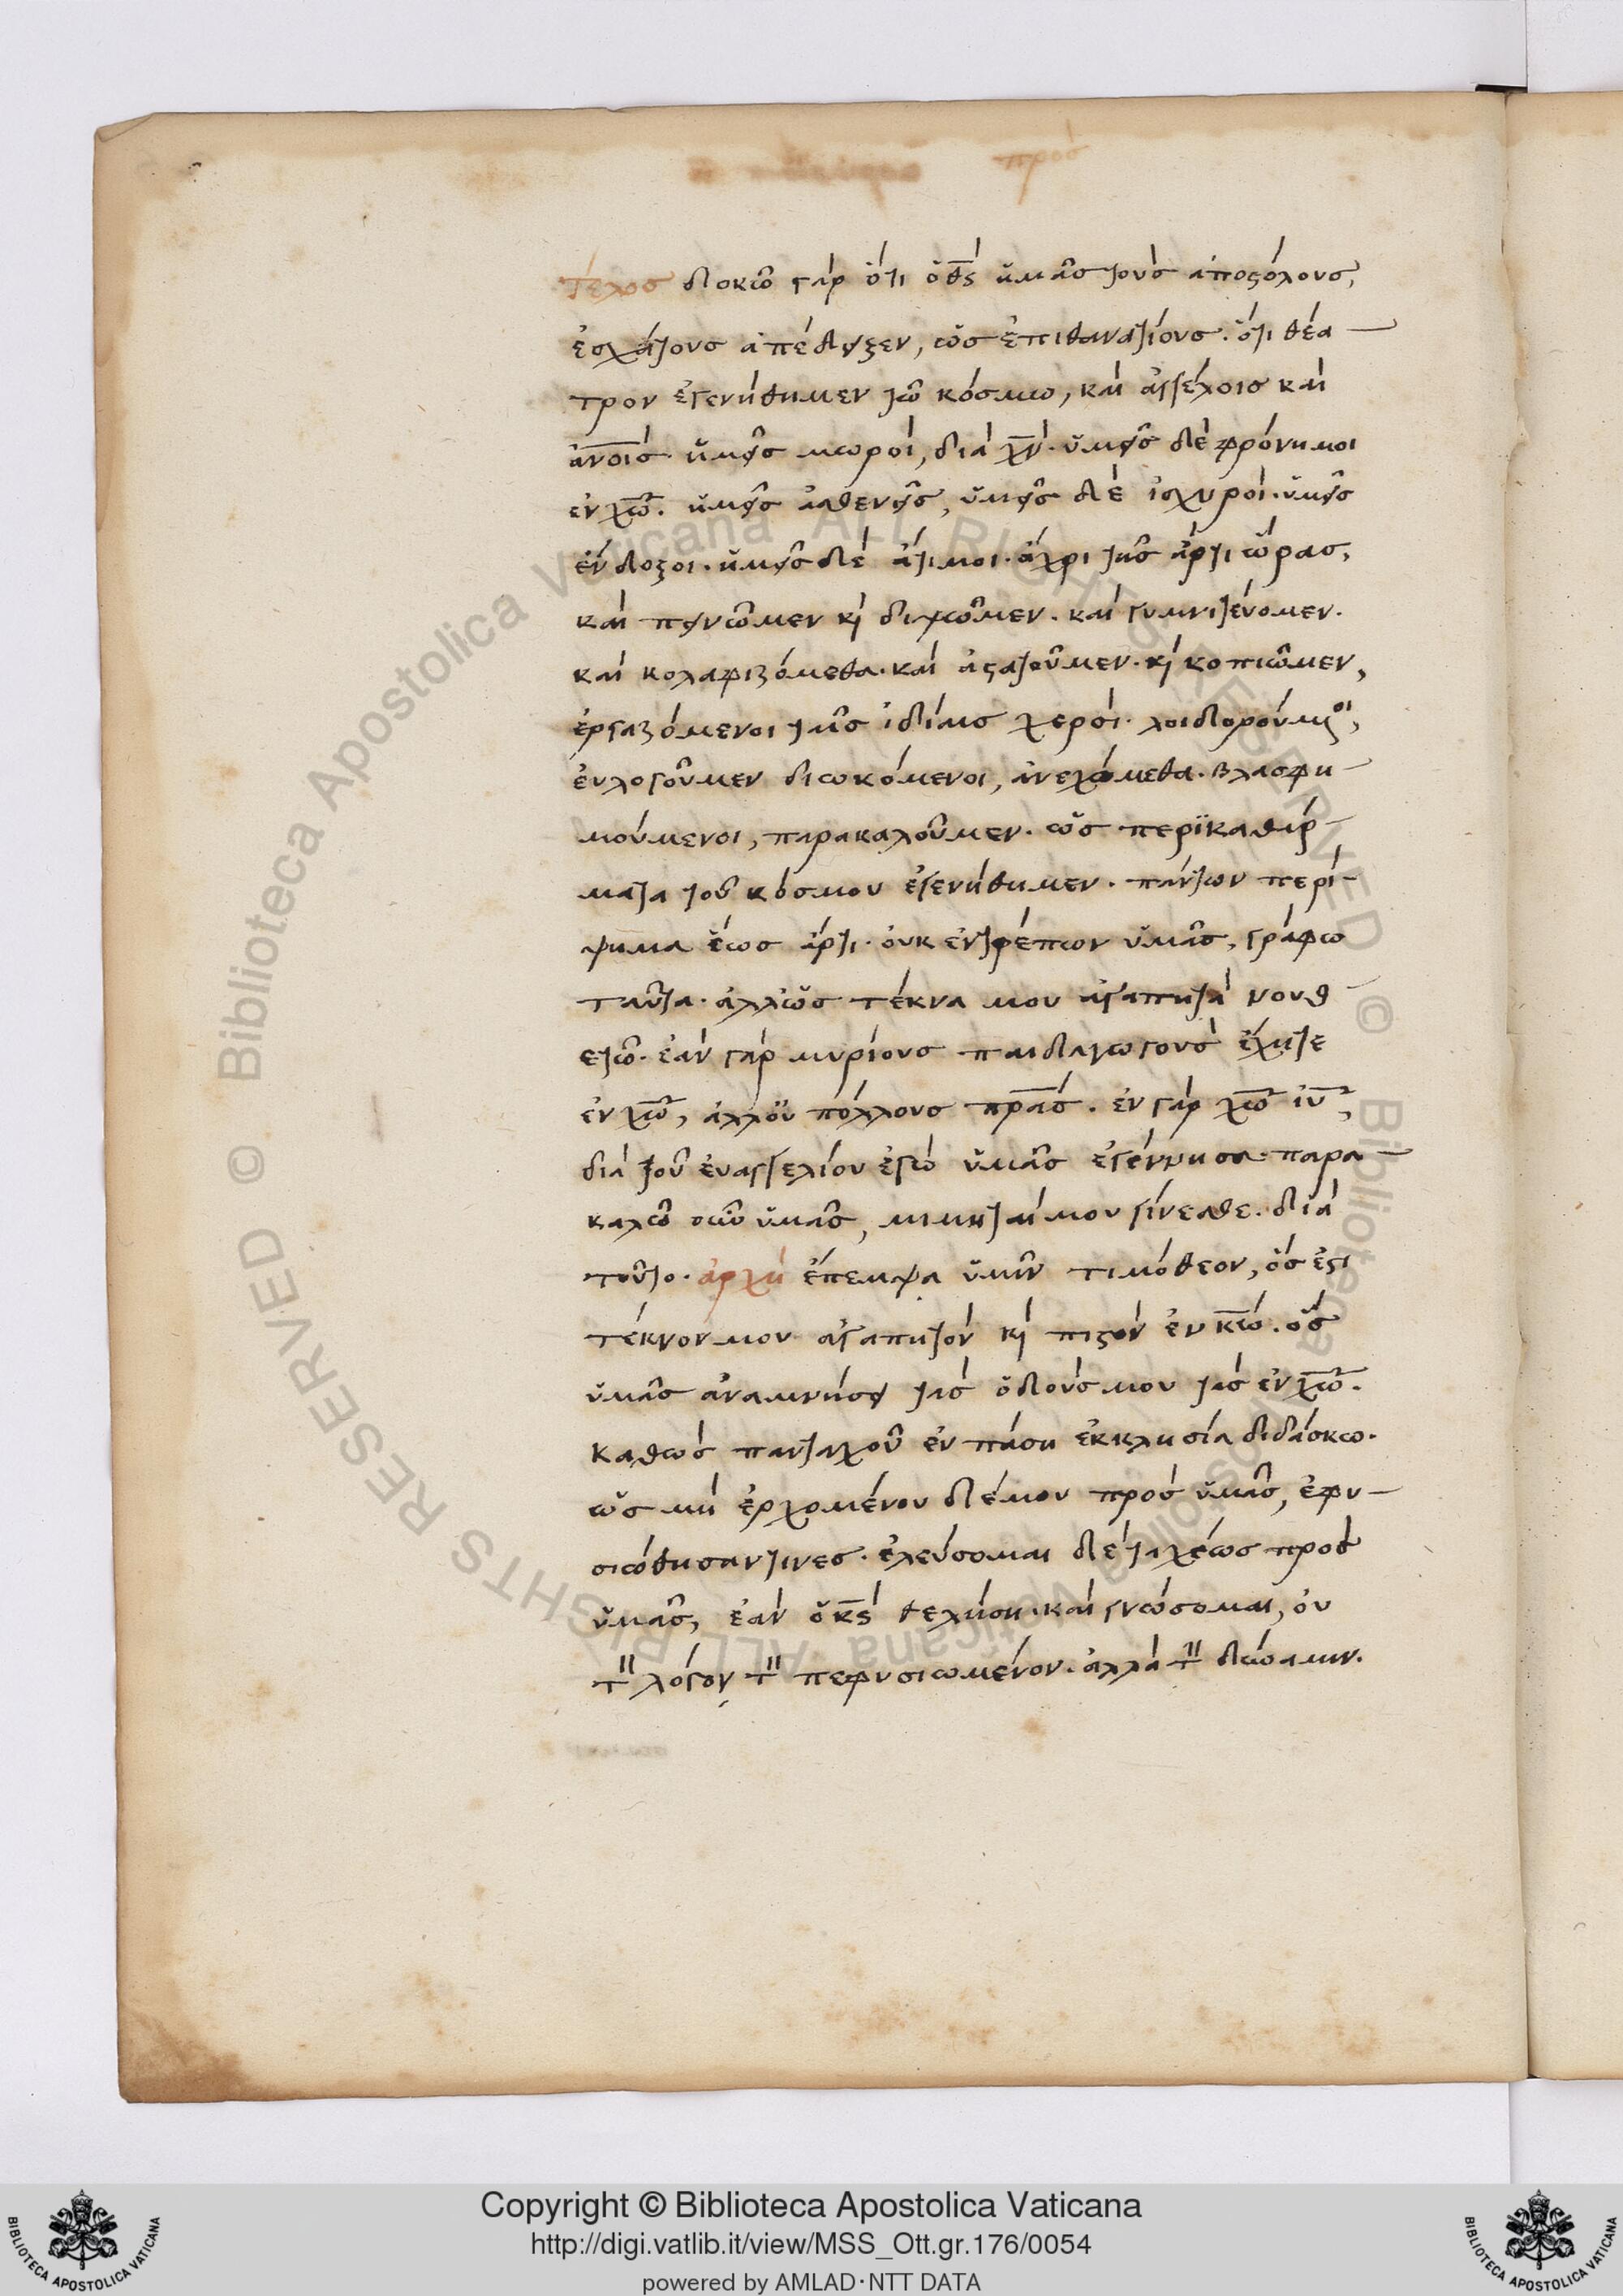 προσ
τέλοσ δοκῶ γὰρ ὅτι ὁ θ̅ς̅ ἡμᾶσ τοὺσ ἀποστόλουσ,
ἐσχάτουσ ἀπέδειξεν, ὡσ ἐπιθανατίουσ. ὅτι θέα
τρον ἐγενήθημεν τῶ κόσμω, καὶ ἀγγέλοισ καὶ
ἀν̅ο̅ι̅σ. ἡμεῖσ μωροὶ, διὰ χ̅ν̅. ὑμεῖσ δὲ φρόνιμοι
ἐν χ̅ω̅. ἡμεῖσ ἀσθενεῖσ, ὑμεῖσ δὲ ἰσχυροὶ. ὑμεῖσ
ἔνδοξοι. ἡμεῖσ δὲ ἄτιμοι. ἄχρι τῆσ ἄρτι ὥρασ,
καὶ πεινῶμεν κὶ διψῶμεν. καὶ γυμνιτεύομεν.
καὶ κολαφιζόμεθα. καὶ ἀστατοῦμεν. κὶ κοπιῶμεν,
ἐργαζόμενοι ταῖσ ἰδίαισ χερσὶ. λοιδορούμενοι,
ἐυλογοῦμεν διωκόμενοι, ἀνεχόμεθα. βλασφη
μούμενοι, παρακαλοῦμεν. ὡσ περϊκαθάρ
ματα τοῦ κόσμου ἐγενήθημεν. πάντων περί
ψημα ἕωσ ἄρτι. ὀυκ ἐντρέπων ὑμᾶσ, γράφω
ταῦτα. ἀλλ' ὡσ τέκνα μου ἀγαπητὰ νουθ
ετῶ. ἐὰν γὰρ μυρίουσ παιδαγωγοὺσ ἔχητε
ἐν χ̅ω̅, ἀλλ' ὀυ πόλλουσ π̅ρ̅α̅σ. ἐν γὰρ χ̅ω̅ ἰ̅υ̅,
διὰ τοῦ ἐυαγγελίου ἐγὼ ὑμᾶσ ἐγέννησα. παρα
καλῶ οὖν ὑμᾶσ, μιμηταί μου γίνεσθε. διὰ
τοῦτο. ἀρχὴ ἔπεμψα ὑμῖν τιμόθεον, ὅσ ἐστι
τέκνον μου ἀγαπητὸν κὶ πιστὸν ἐν κ̅ω̅. ὃσ
ὑμᾶσ ἀναμνήσει τὰσ ὁδούσ μου τὰσ ἐν χ̅ω̅.
καθὼσ πανταχοῦ ἐν πάση ἐκκλησία διδάσκω.
ὡσ μὴ ἐρχομένου δέ μου πρὸσ ὑμᾶσ, ἐφυ
σιώθησαν τινεσ. ἐλεύσομαι δὲ ταχέωσ πρὸσ
ὑμᾶσ, ἐὰν ὁ κ̅ς̅ θελήση. καὶ γνώσομαι, ὀυ
τὸν λόγον τῶν πεφυσιωμένον. ἀλλὰ τὴν δύναμιν.
Copyright © Biblioteca Apostolica Vaticana
http://digi.vatlib.it/view/MSS_Ott.gr.176/0054
powered by AMLAD·NTT DATA